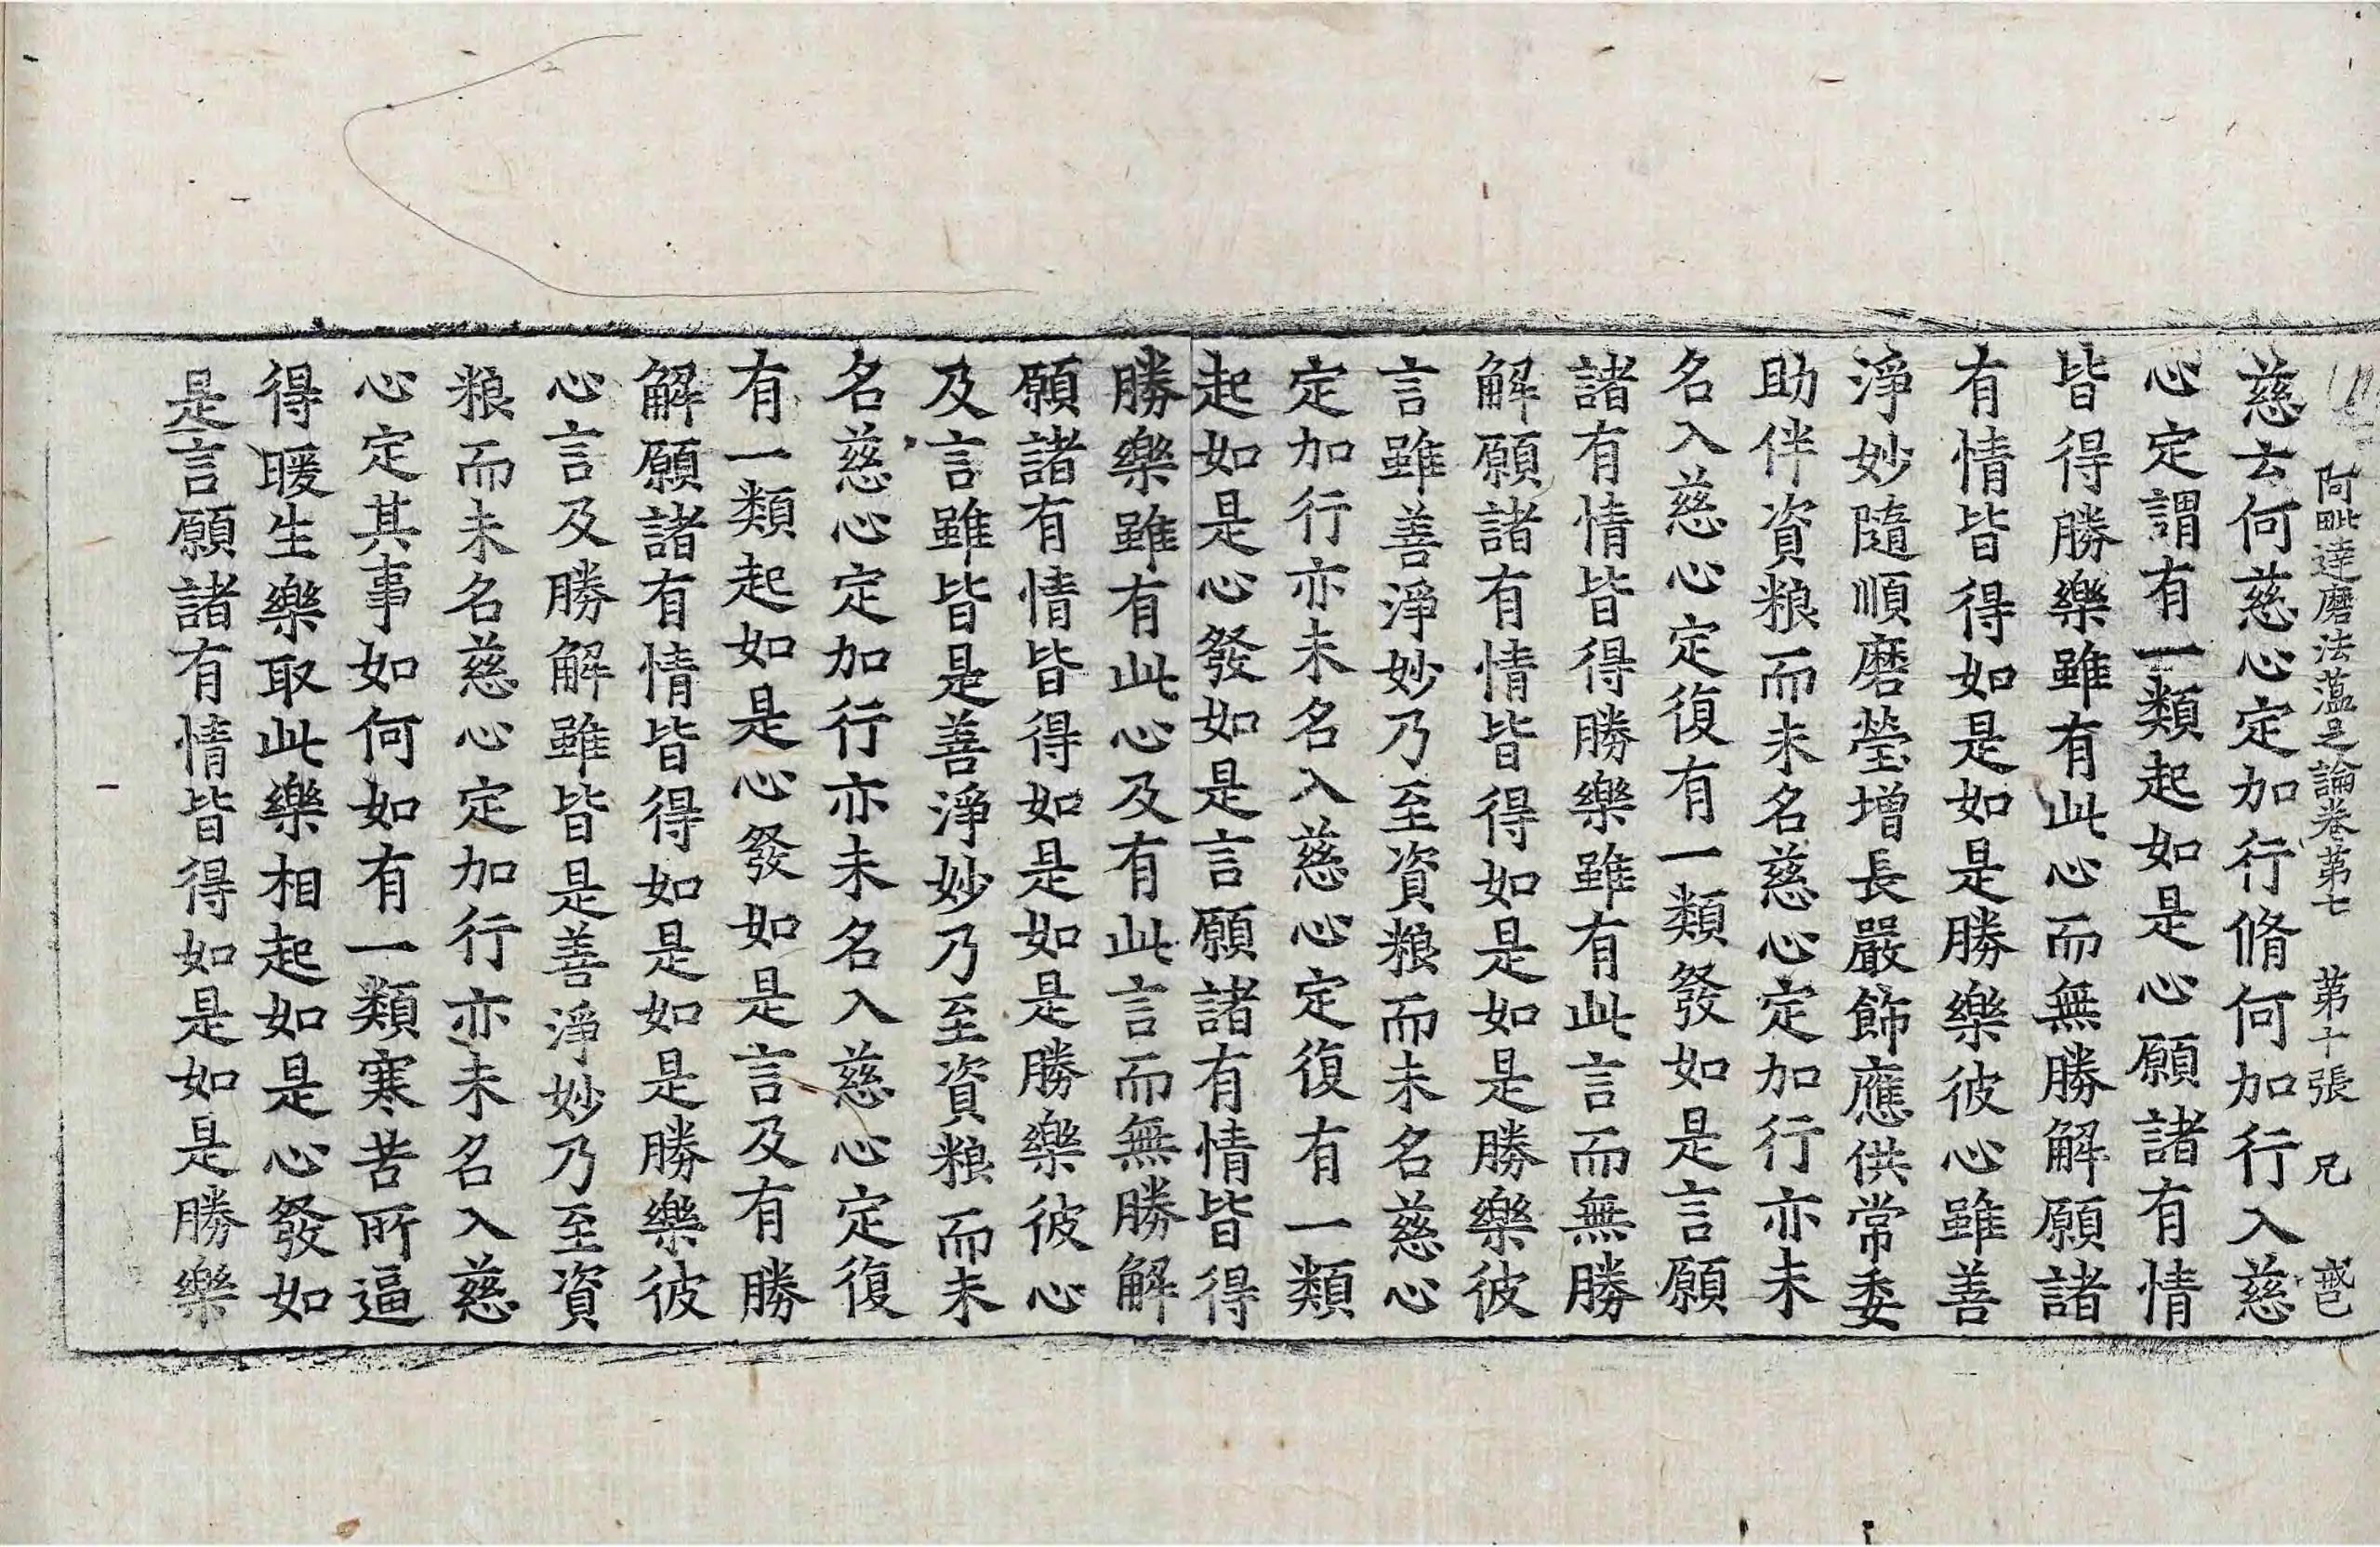 阿毗達磨法蘊足論卷第七 第十張 兄
慈去何慈心定加行脩何加行入慈
心定謂有一類起如是心願諸有情
皆得勝樂雖有此心而無勝解願諸
有情皆得如是如是勝樂彼心雖善
淨妙隨順磨瑩增長嚴飾應供常委
助伴資粮而未名慈心定加行亦未
名入慈心定復有一類發如是言願
諸有情皆得勝樂雖有此言而無勝
解願諸有情皆得如是如是勝樂彼
言雖善淨妙乃至資粮而未名慈心
定加行亦未名入慈心定復有一類
起如是心發如是言願諸有情皆得
勝樂雖有此心及有此言而無勝解
願諸有情皆得如是如是勝樂彼心
及言雖皆是善淨妙乃至資粮而未
名慈心定加行亦未名入慈心定復
有一類起如是心發如是言及有勝
解願諸有情皆得如是如是勝樂彼
心言及勝解雖皆是善淨妙乃至資
粮而未名慈心定加行亦未名入慈
心定其事如何如有一類寒苦所逼
得暖生樂取此樂相起如是心發如
是言願諸有情皆得如是如是勝樂